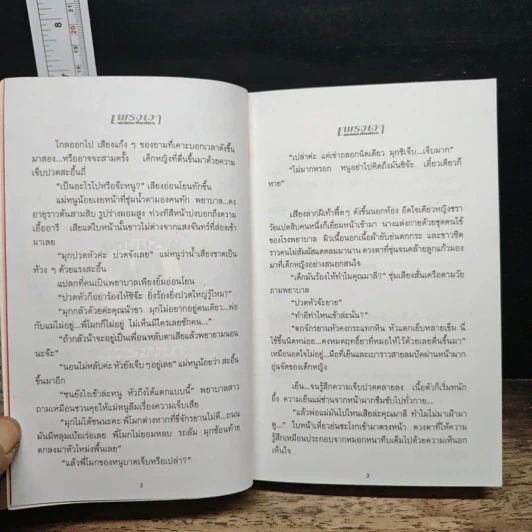 เพรงเงา
ไกลออกไป เสียงแก๊ง ๆ ของยามที่เคาะบอกเวลาดังขึ้น
มาสอง...หรืออาจจะสามครั้ง เด็กหญิงที่ตื่นขึ้นมาด้วยความ
เจ็บปวดสะอื้นถี่
“เป็นอะไรไปหรือจ๊ะหนู?” เสียงอ่อนโยนทักขึ้น
แม่หนูน้อยเงยหน้าที่ชุ่มน้ำตามองคนทัก พยาบาล...คง
อายุราวต้นสามสิบ รูปร่างผอมสูง ท่วงทีสีหน้าบ่งบอกถึงความ
เอื้ออารี เสียแต่ใบหน้านั้นขาวไม่ต่างจากแสงจันทร์ที่ส่องเข้า
มาเลย
“มุกปวดหัวค่ะ ปวดจังเลย” แม่หนูว่าน้ำเสียงขาดเป็น
ห้วง ๆ ด้วยแรงสะอื้น
แปลกที่คนเป็นพยาบาลเพียงยิ้มอ่อนโยน
“ปวดหัวก็อย่าร้องไห้ซิจ๊ะ ยิ่งร้องยิ่งปวดใหญ่รู้ไหม?”
“มุกกลัวด้วยค่ะคุณน้าขา มุกไม่อยากอยู่คนเดียว...พ่อ
กับแม่ไม่อยู่...พี่โมกก็ไม่อยู่ ไม่เห็นมีใครเลยซักคน...”
“ถ้ากลัวน้าจะอยู่เป็นเพื่อนหลับตาเสียแล้วพยายามนอน
นะจ๊ะ”
“นอนไม่หลับค่ะ หัวยังเจ็บๆอยู่เลย” แม่หนูน้อยว่า สะอื้น
ขึ้นมาอีก
“ซนยังไงเข้าล่ะหนู หัวถึงได้แตกแบบนี้” พยาบาลสาว
ถามเหมือนชวนคุยให้แม่หนูลืมเรื่องความเจ็บเสีย
“มุกไม่ได้ซนนะคะ พี่โมกต่างหากที่ขี่จักรยานไม่ดี...ถนน
มันมีหลุมเบ้อเร่อเลย พี่โมกไม่ยอมหลบ รถล้ม มุกซ้อนท้าย
ตกลงมาหัวโหม่งพื้นเลย”
“แล้วพี่โมกของหนูบาดเจ็บหรือเปล่า?”
2
เพรงเงา
“เปล่าค่ะ แค่เข่าถลอกนิดเดียว มุกซิเจ็บ...เจ็บมาก”
“ไม่มากหรอก หนูอย่าไปคิดถึงมันซิจ๊ะ เดี๋ยวเดียวก็
หาย”
เสียงลากฝีเท้าพืดๆ ดังขึ้นนอกห้อง อึดใจเดียวหญิงชรา
วัยแปดสิบคนหนึ่งก็เยี่ยมหน้าเข้ามา นางแต่งกายด้วยชุดคนไข้
ของโรงพยาบาล ผิวเนื้อนอกเนื้อผ้ายับย่นตกกระ และขาวซีด
ราวคนไม่สัมผัสแดดลมมานาน ดวงตาที่ขุ่นจนคล้ายลูกแก้วมอง
มาที่เด็กหญิงอย่างสนอกสนใจ
“เด็กมันร้องไห้ทำไมคุณมาลี?” ซุ่มเสียงสั่นเครือตามวัย
ถามพยาบาล
“ปวดหัวจ้ะยาย”
“ทำอีท่าไหนเข้าล่ะนั่น?”
“ตกจักรยานหัวคงกระแทกหิน หัวแตกเย็บหลายเข็ม นี่
ใช้ขึ้นนิดหน่อย...คงหมดฤทธิ์ยาที่หมอให้ไว้ด้วยเลยตื่นขึ้นมา”
เหมือนอดใจไม่อยู่...มือที่เย็นและเบาราวสายลมปัดผ่านหน้ามาก
อุ่นจัดของเด็กหญิง
เย็น...จนรู้สึกความเจ็บปวดคลายลง เนื้อตัวก็เริ่มหนัก
อึ้ง ความเย็นแผ่ซ่านจากหน้าผากซึมซับไปทั่วกาย...
“แล้วพ่อแม่มันไปไหนเสียล่ะคุณมาลี ทำไมไม่มาเฝ้ามา
ดู...” ใบหน้าเหี่ยวย่นชะโงกเข้ามาตรงหน้า ดวงตาที่ให้ความ
รู้สึกเหมือนประกอบจากหมอกหนาทึบเต็มไปด้วยความเห็นอก
เห็นใจ
3